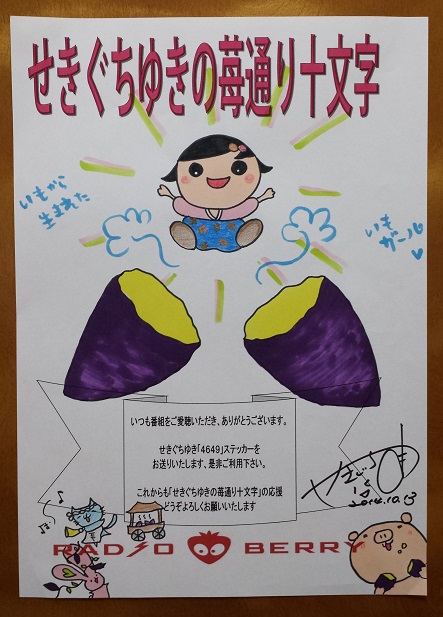 せきぐちゆきの苺通り十文字
いもから
生まれた
いも
ガール
いつも番組をご愛聴いただき、ありがとうございます。
せきぐちゆき「4649」ステッカーを
お送りいたします、是非ご利用下さい。
これからも「せきぐちゆきの苺通り十文字」の応援
どうぞよろしくお願いいたします
RADIO BERRY